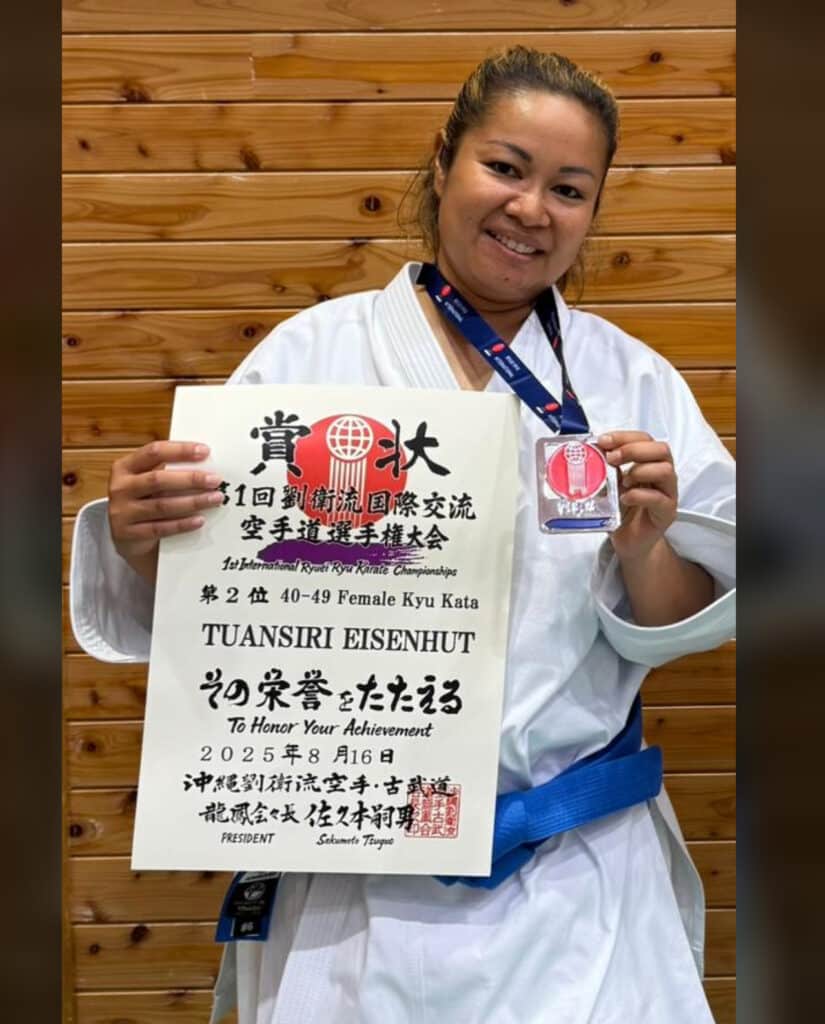 賞状
第1回劉衛流国際交流
空手道選手権大会
1st International Ryuei Ryu Karate Championships
第2位 40-49 Female Kyu Kata
TUANSIRI EISENHUT
その栄誉をたたえる
To Honor Your Achievement
2025年8月16日
沖縄劉衛流空手・古武道
龍鳳会々長 佐久本嗣男
PRESIDENT Sakumoto Tsuguo